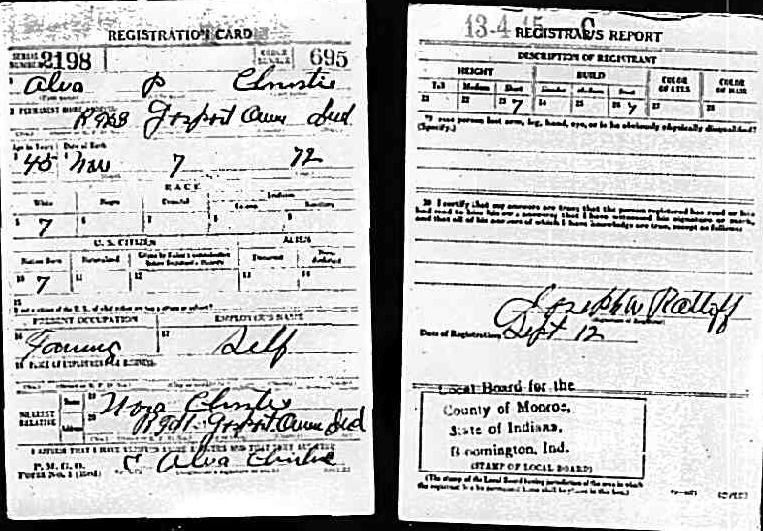 REGISTRATION CARD
SERIAL NUMBER 2198
ORDER NUMBER 695
Alva P Christie
PERMANENT HOME ADDRESS
Gosport Owen Ind
Age in Years Date of Birth
45 Nov 7 72
RACE
White Negro Oriental Indian
7
U. S. CITIZEN ALIEN
Native Born Naturalized
10 7 11 12 13 14
15
PRESENT OCCUPATION EMPLOYER'S NAME
16 Farming 17 Self
NEAREST RELATIVE
Name 19 Nora Christie
Address 20 Gosport Owen Ind
P. M. G. O.
Alva Christie
13-4-15 C
REGISTRAR'S REPORT
DESCRIPTION OF REGISTRANT
HEIGHT BUILD COLOR OF EYES COLOR OF HAIR
Tall Medium Short Slender Medium Stout
21 22 23 7 24 25 26 7 27 28
29 Has person lost arm, leg, hand, eye, or is he obviously physically disqualified?
(Specify.)
30 I certify that my answers are true; that the person registered has read or has
had read to him his own answers; that I have witnessed his signature or mark,
and that all of his answers of which I have knowledge are true, except as follows:
Joseph W Ratloff
Date of Registration Sept 12
Local Board for the
County of Monroe,
State of Indiana,
Bloomington, Ind.
(STAMP OF LOCAL BOARD)
(The stamp of the Local Board having jurisdiction of the area in which
the registrant has his permanent home shall be placed in this box.)